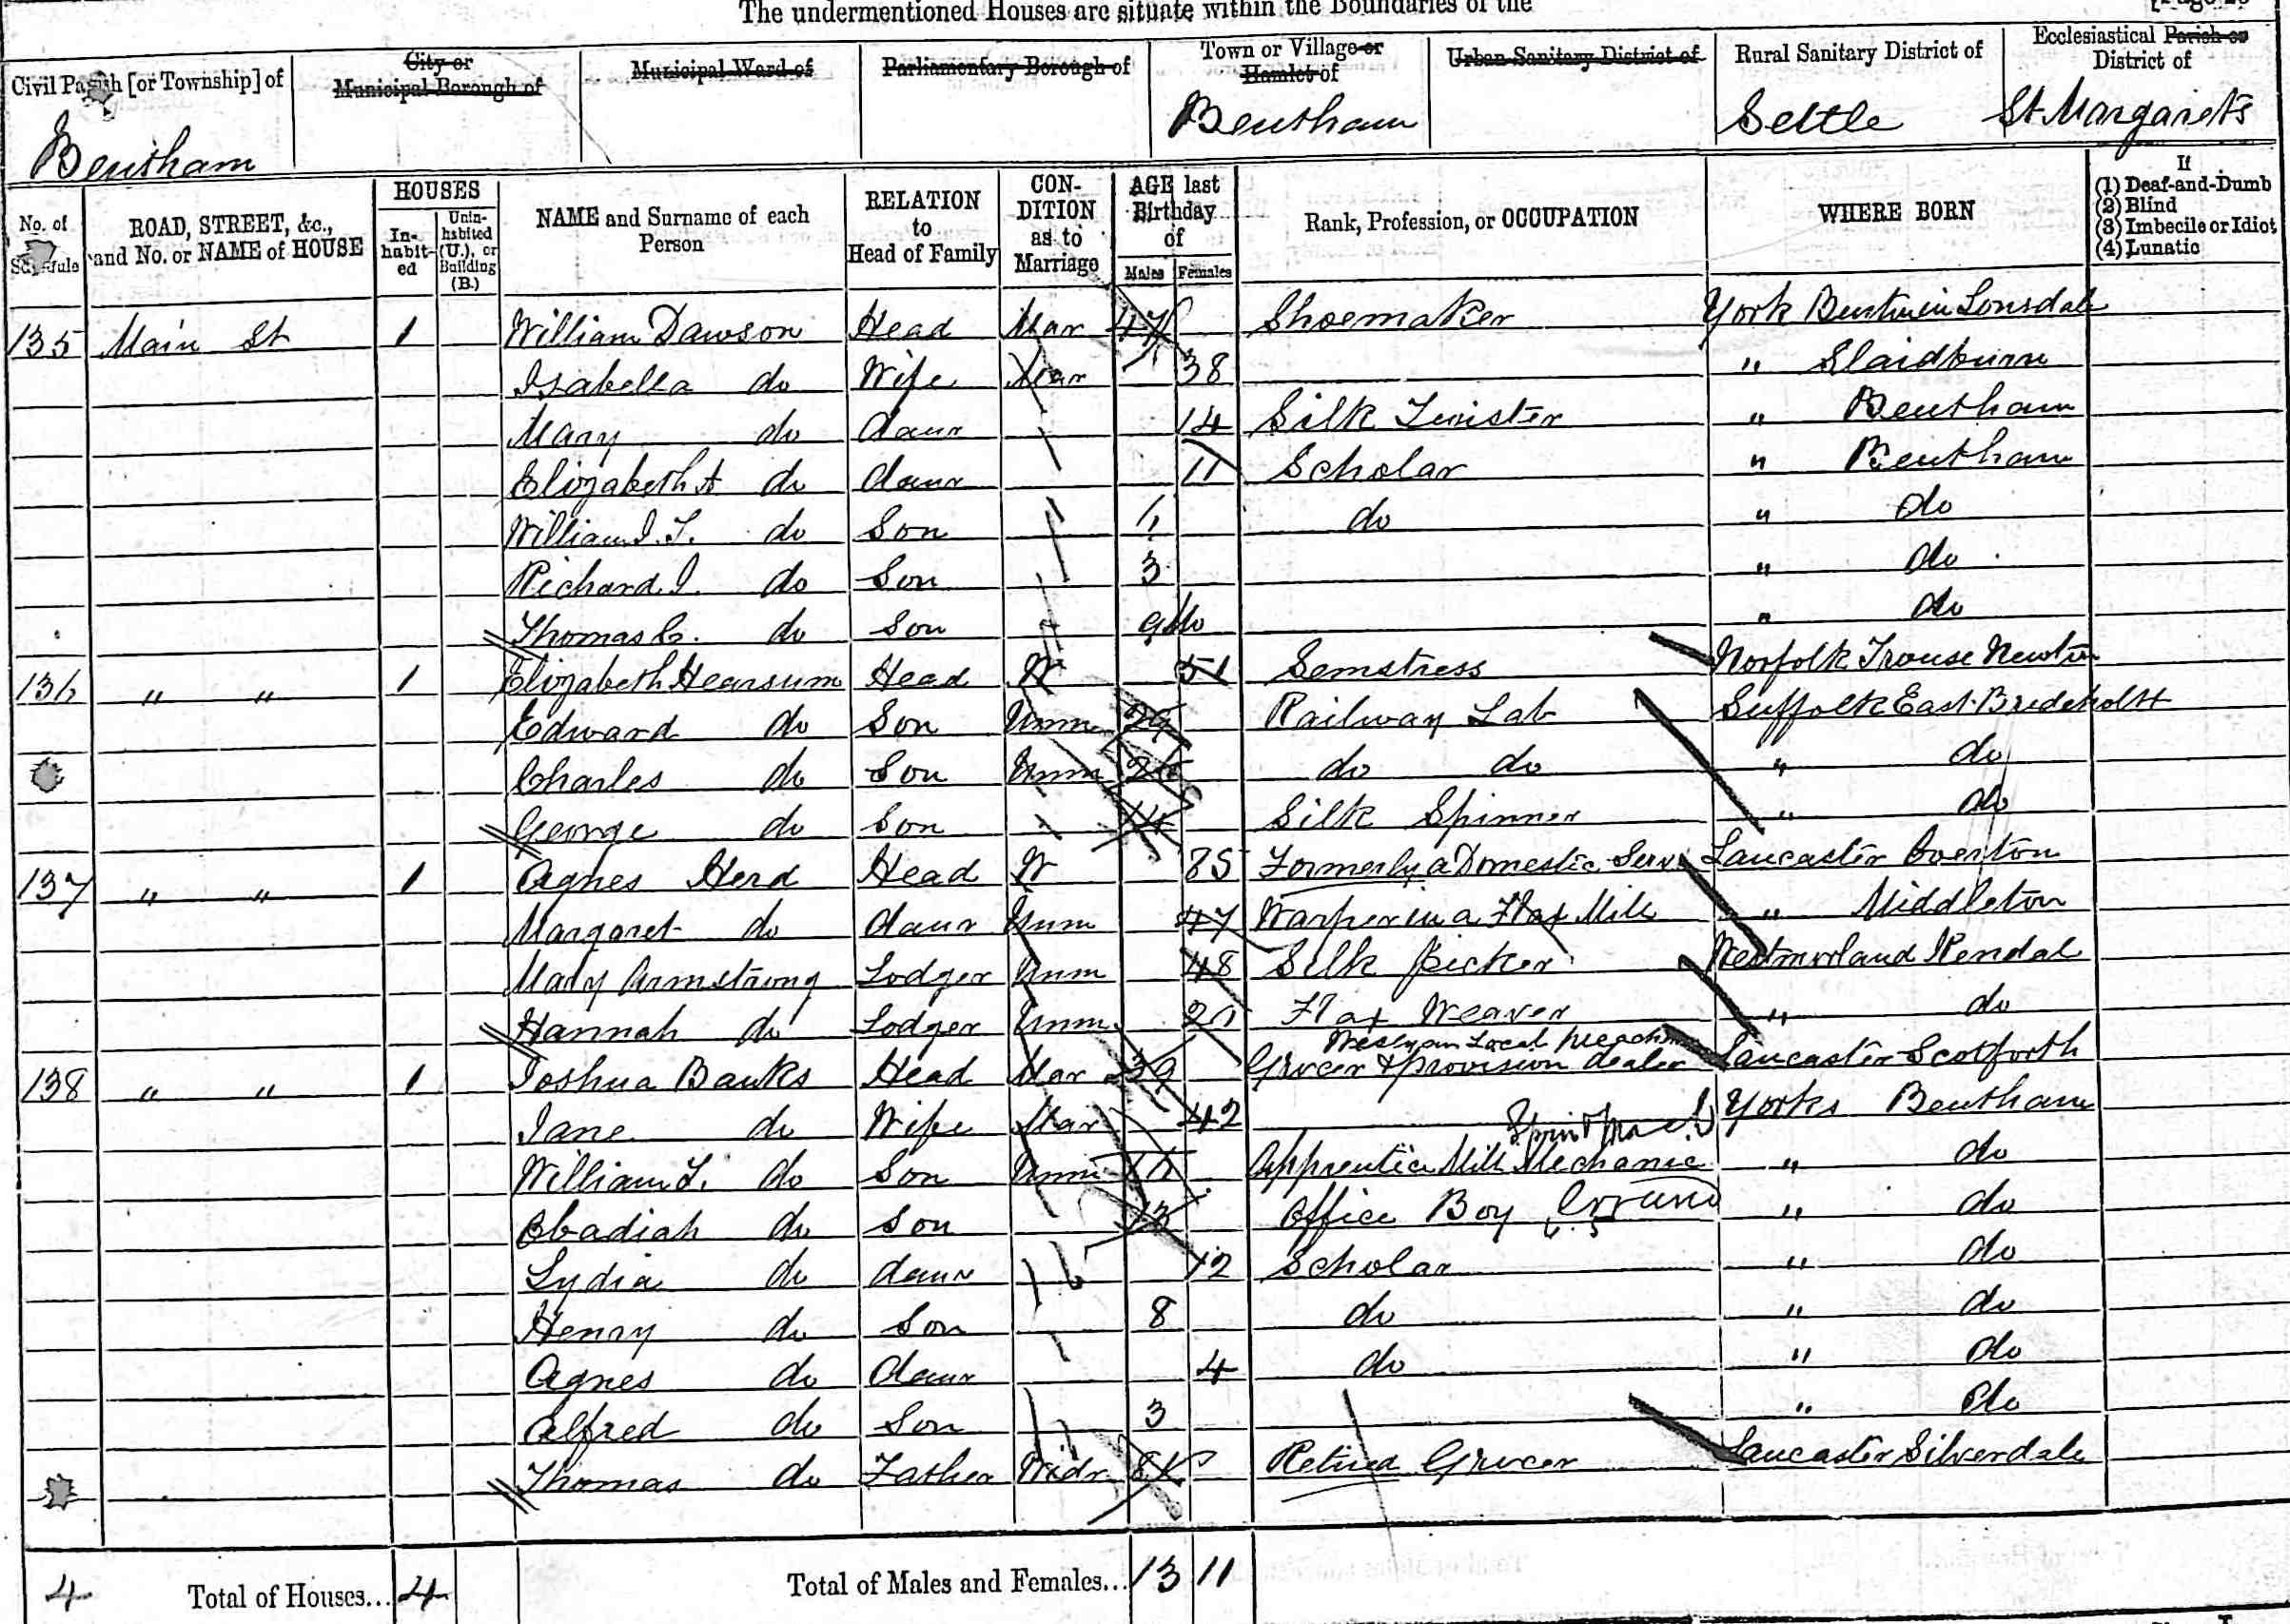 The undermentioned Houses are situate within the Boundaries of the
Civil Parish [or Township] of
City or Municipal Borough of
Municipal Ward of
Parliamentary Borough of
Town or Village or Hamlet of
Urban Sanitary District of
Rural Sanitary District of
Ecclesiastical Parish or District of
Bentham
Bentham
Settle
St Margaret's
No. of Schedule
ROAD, STREET, &c., and No. or NAME of HOUSE
HOUSES
In-habit-ed
Unin-habited (U.), or Building (B.)
NAME and Surname of each Person
RELATION to Head of Family
CON-DITION as to Marriage
AGE last Birthday of
Males
Females
Rank, Profession, or OCCUPATION
WHERE BORN
If
(1) Deaf-and-Dumb
(2) Blind
(3) Imbecile or Idiot
(4) Lunatic
135 Main St 1 William Dawson Head Mar 47 Shoemaker York Lonsdale
Isabella do Wife Mar 38 " Slaidburn
Mary do daur 14 Silk Twister " Bentham
Elizabeth A do daur 11 Scholar " Bentham
William do Son do " do
Richard do Son 3 " do
Thomas C. do Son " do
136 " " 1 Elizabeth Hearsum Head W 51 Semstress Norfolk Trouse Newton
Edward do Son Unm 29 Railway Lab Suffolk East
Charles do Son Unm do do " do
George do Son Silk Spinner " do
137 " " 1 Agnes Herd Head W 85 Formerly a Domestic Serv Lancaster Overton
Margaret do daur Unm 47 Warper in a Flax Mill " Middleton
Mary Armstrong Lodger Unm 48 Silk picker Westmorland Kendal
Hannah do Lodger Unm Flax Weaver " do
Wesleyan Local preacher
138 " " 1 Joshua Banks Head Mar 39 Grocer & provision dealer Lancaster Scotforth
Jane do Wife Mar 42 Yorks Bentham
William T. do Son Unm Apprentice Mill Mechanic " do
Obadiah do Son 13 Office Boy Errand " do
Lydia do daur 12 Scholar " do
Henry do Son 8 do " do
Agnes do daur 4 do " do
Alfred do Son 3 " do
Thomas do Father Widr Retired Grocer Lancaster Silverdale
4 Total of Houses... 4 Total of Males and Females... 13 11